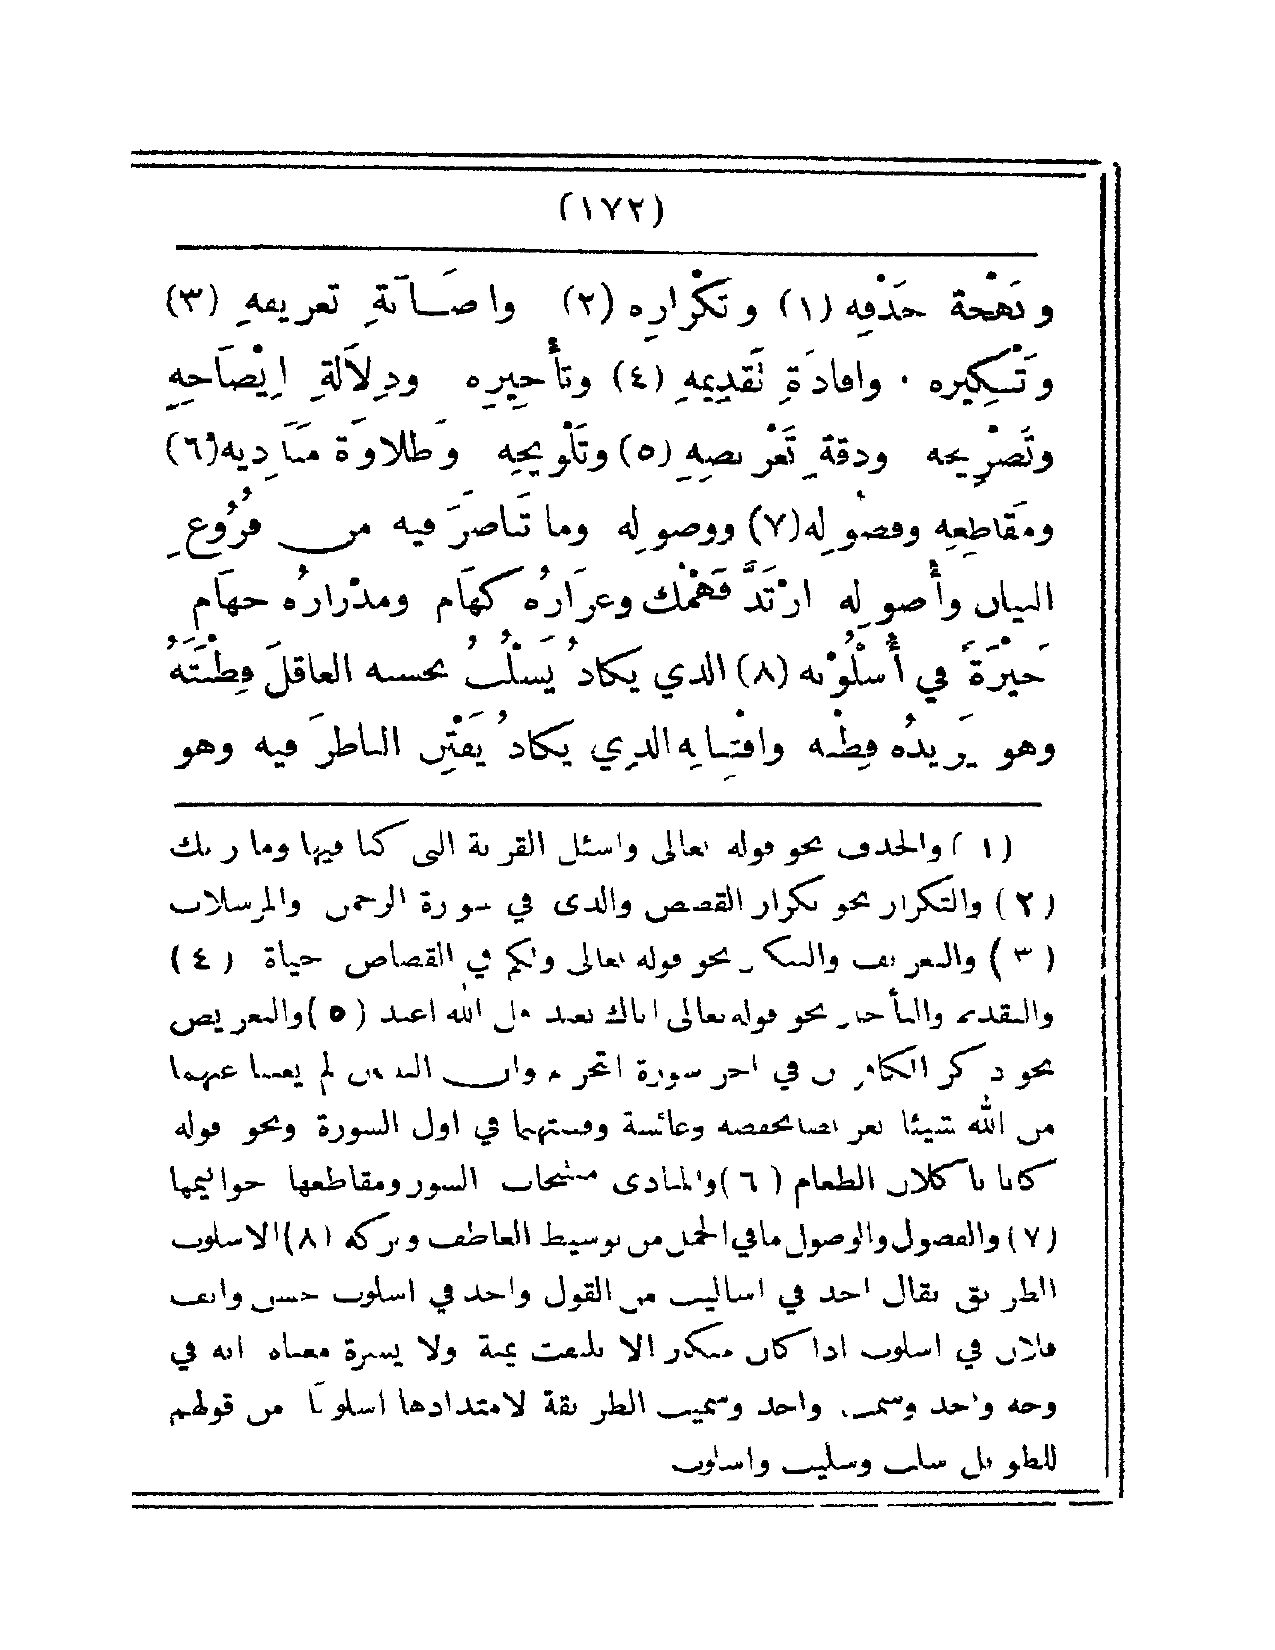 (١٧٢)
وبَهْجة حَذْفِه (١) وتَكْراره (٢) واصَابة تعريفهِ (٣)
وتَنْكيره . وافادَةِ تَقديمِه (٤) وتأْخيرِه ودِلاَلةِ اِيْضَاحِهِ
وتَصْرِيحه ودقةِ تَعْريضِه (٥) وتَلْويحِه وطَلاوَة مبَادِيه (٦)
ومَقاطعِه وفصُولِه (٧) ووصولِه وما تَناصَرَ فيه من فُرُوعِ
البيان وأُصولِه ارْتَدَّ فَهْمُك وعِرَارُه كَهَام ومدْرَارُه جهَام
حَيْرَةً في أُسْلُوْبه (٨) الذي يكادُ يَسْلُبُ بحسنه العاقلَ فِطْنَتَهُ
وهو يَريدُه فِطْنَه وافْتِنانِه الذي يكادُ يَفْتِن الناظرَ فيه وهو
(١) والحذف نحو قوله تعالى واسئل القرية التي كنا فيها وما ربك
(٢) والتكرار نحو تكرار القصص والذي في سورة الرحمن والمرسلات
(٣) والتعريف والتنكير نحو قوله تعالى ولكم في القصاص حياة (٤)
والتقديم والتأخير نحو قوله تعالى اياك نعبد قل الله اعبد (٥) والتعريض
نحو ذكر الكافرين في اخر سورة التحريم وان اللذين لم يغنيا عنهما
من الله شيئا تعريضا بحفصة وعائشة وقصتهما في اول السورة ونحو قوله
كانا ياكلان الطعام (٦) والمبادى مفتتحات السور ومقاطعها خواتيمها
(٧) والفصول والوصول ما في الجمل من توسيط العاطف وتركه (٨) الاسلوب
الطريق يقال اخذ في اساليب من القول واخذ في اسلوب حسن وانف
فلان في اسلوب اذا كان متكبر الا يلتفت يمنة ولا يسرة معناه انه في
وجه واحد وسمت واحد وسميت الطريقة لامتدادها اسلوبا من قولهم
للطويل سلب وسليب واسلوب